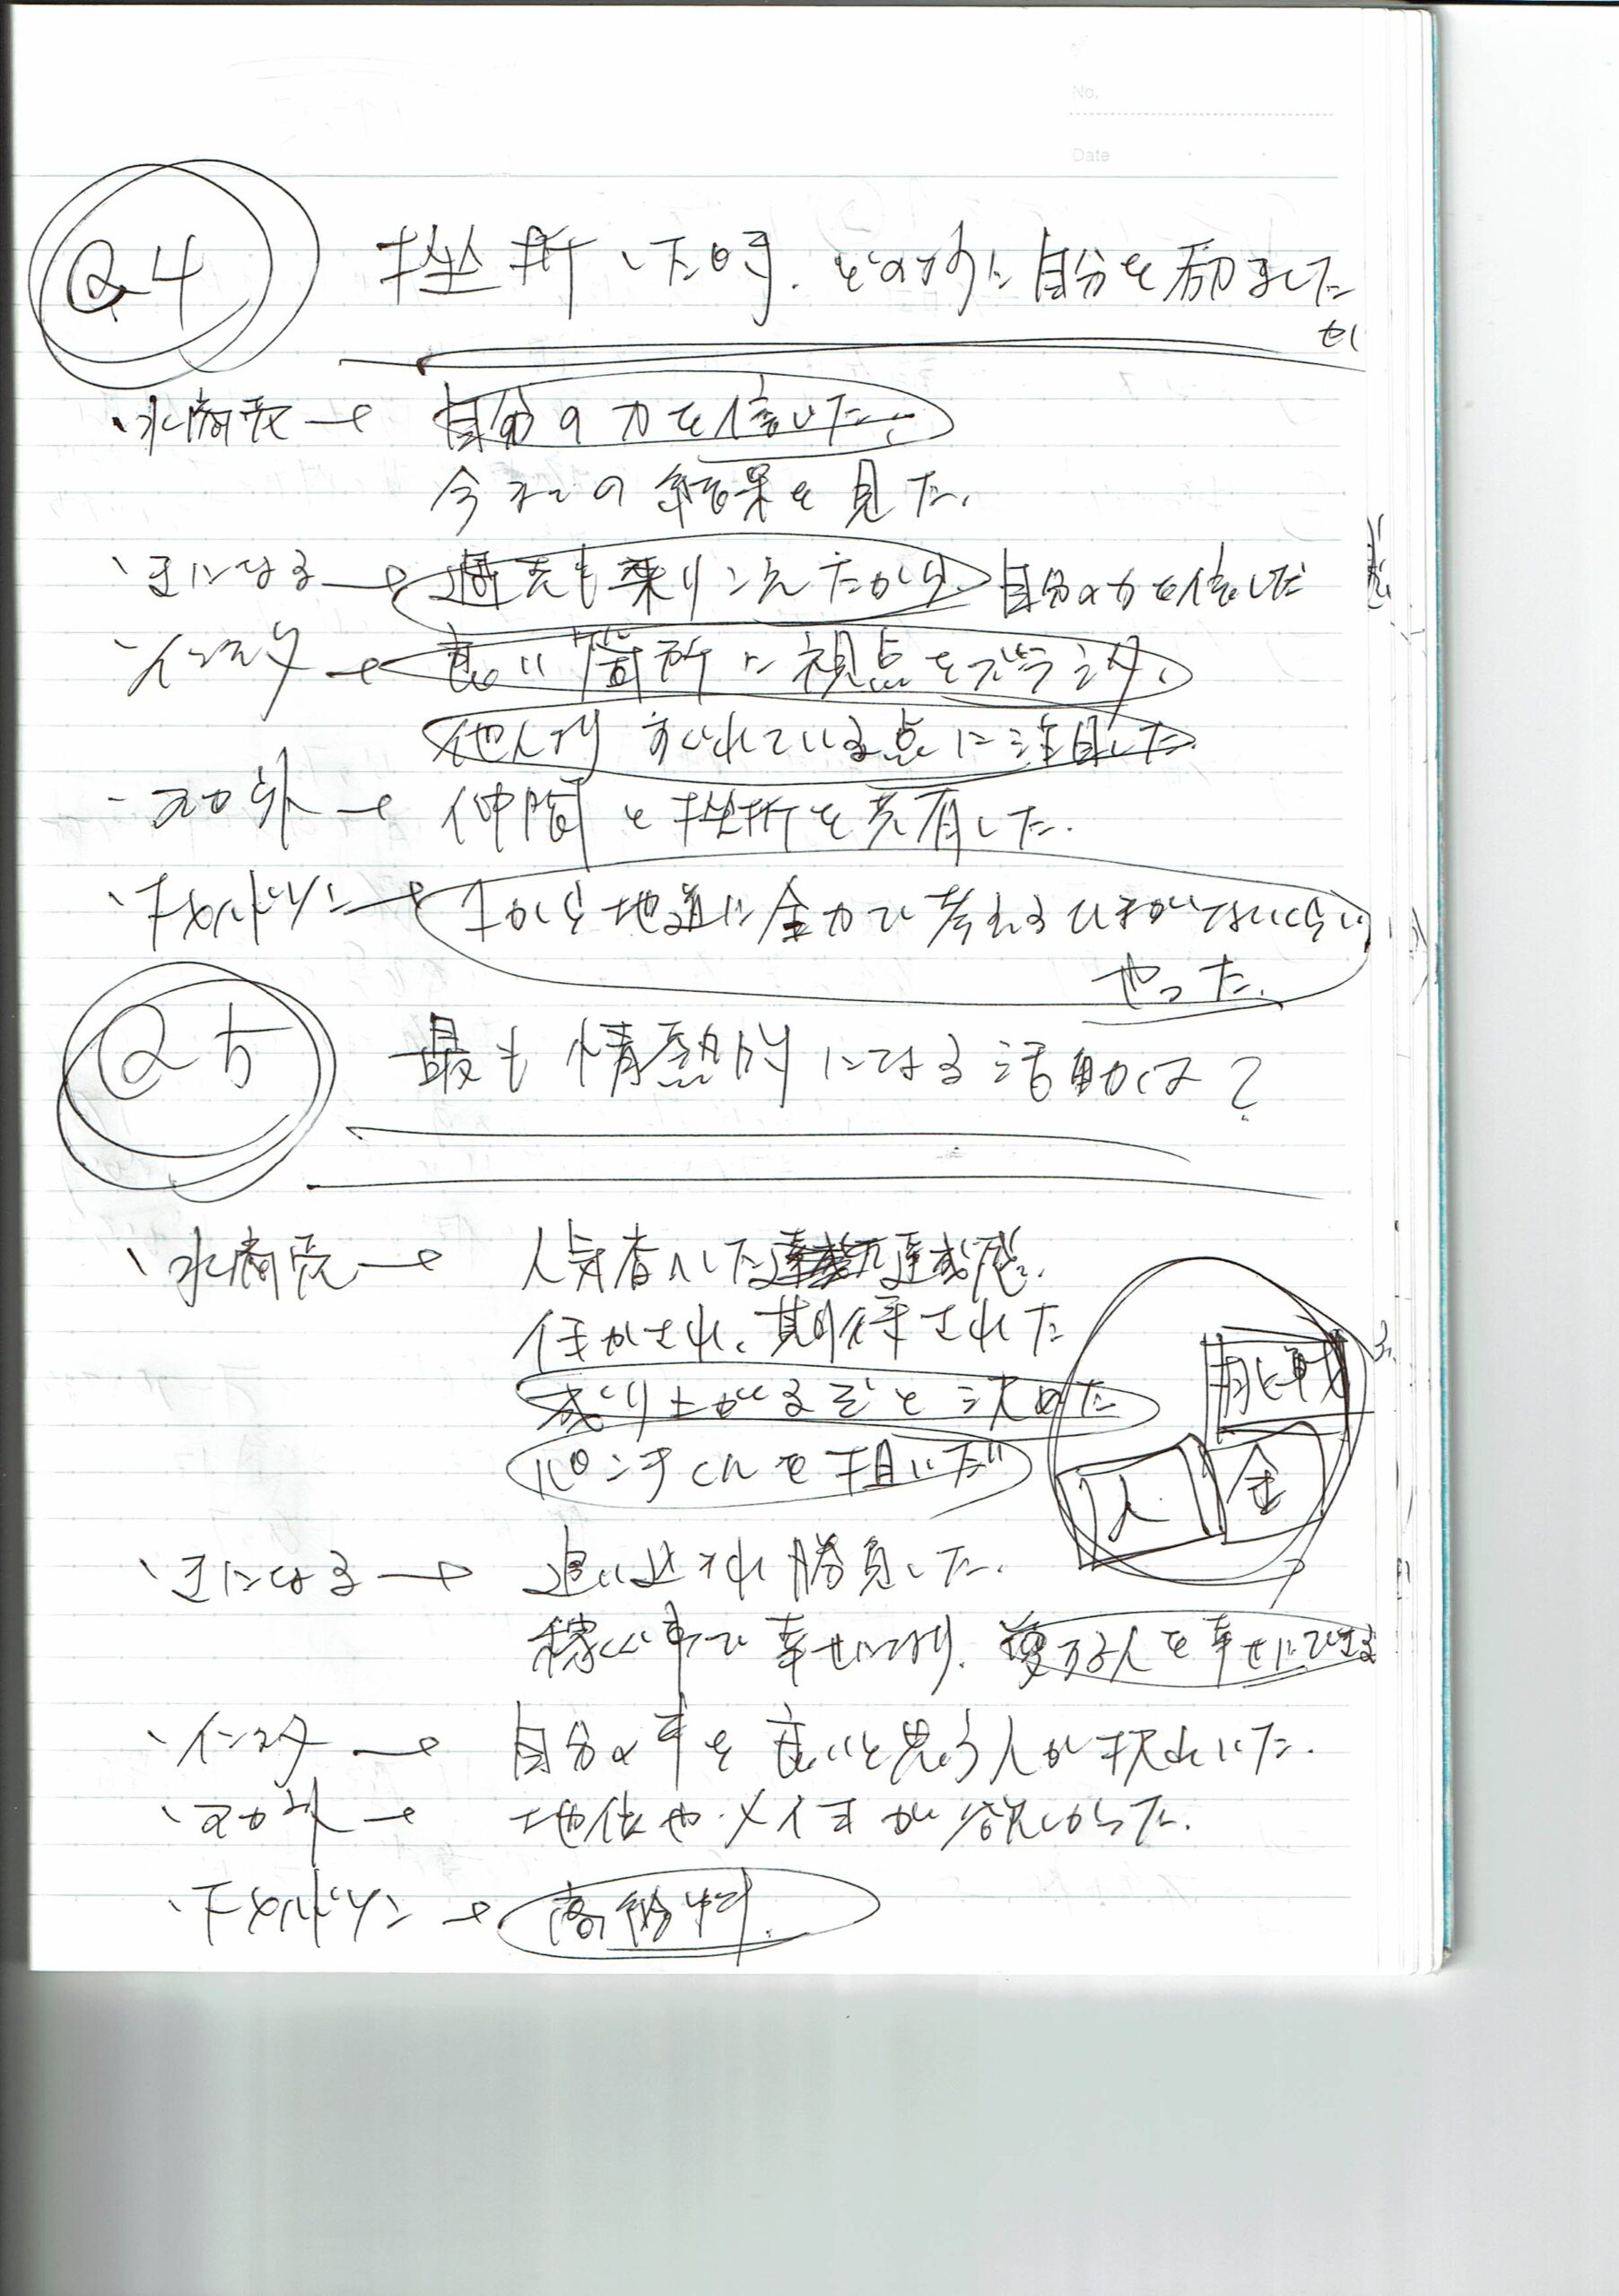 No.
Date
Q4 挫折した時、どの様に自分を励ました
か
・水商売→ 自分の力を信じた。
今までの結果を見た。
・王になる→ 過去も乗りこえたから、自分の力を信じた
・インスタ→ 良い箇所に視点を
他人よりすぐれている点に注目した。
・スカ外→ 仲間と挫折を共有した。
・下かから地道に全力で考えるひまがないくらい
やった。
Q5 最も情熱的になる活動は?
・水商売→ 人気者への達成感。
任かされ、期待された
成り上がるぞと決めた
パンチくんを狙いだ
挑戦
人 金
・王になる→ 追い込まれ勝負した。
稼ぐ事で幸せになり、人を幸せにできる
・インスタ→ 自分の事を良いと思う人が現れた。
・スカ外→ 地位や・メイ王が欲しかった。
→ 高給料。